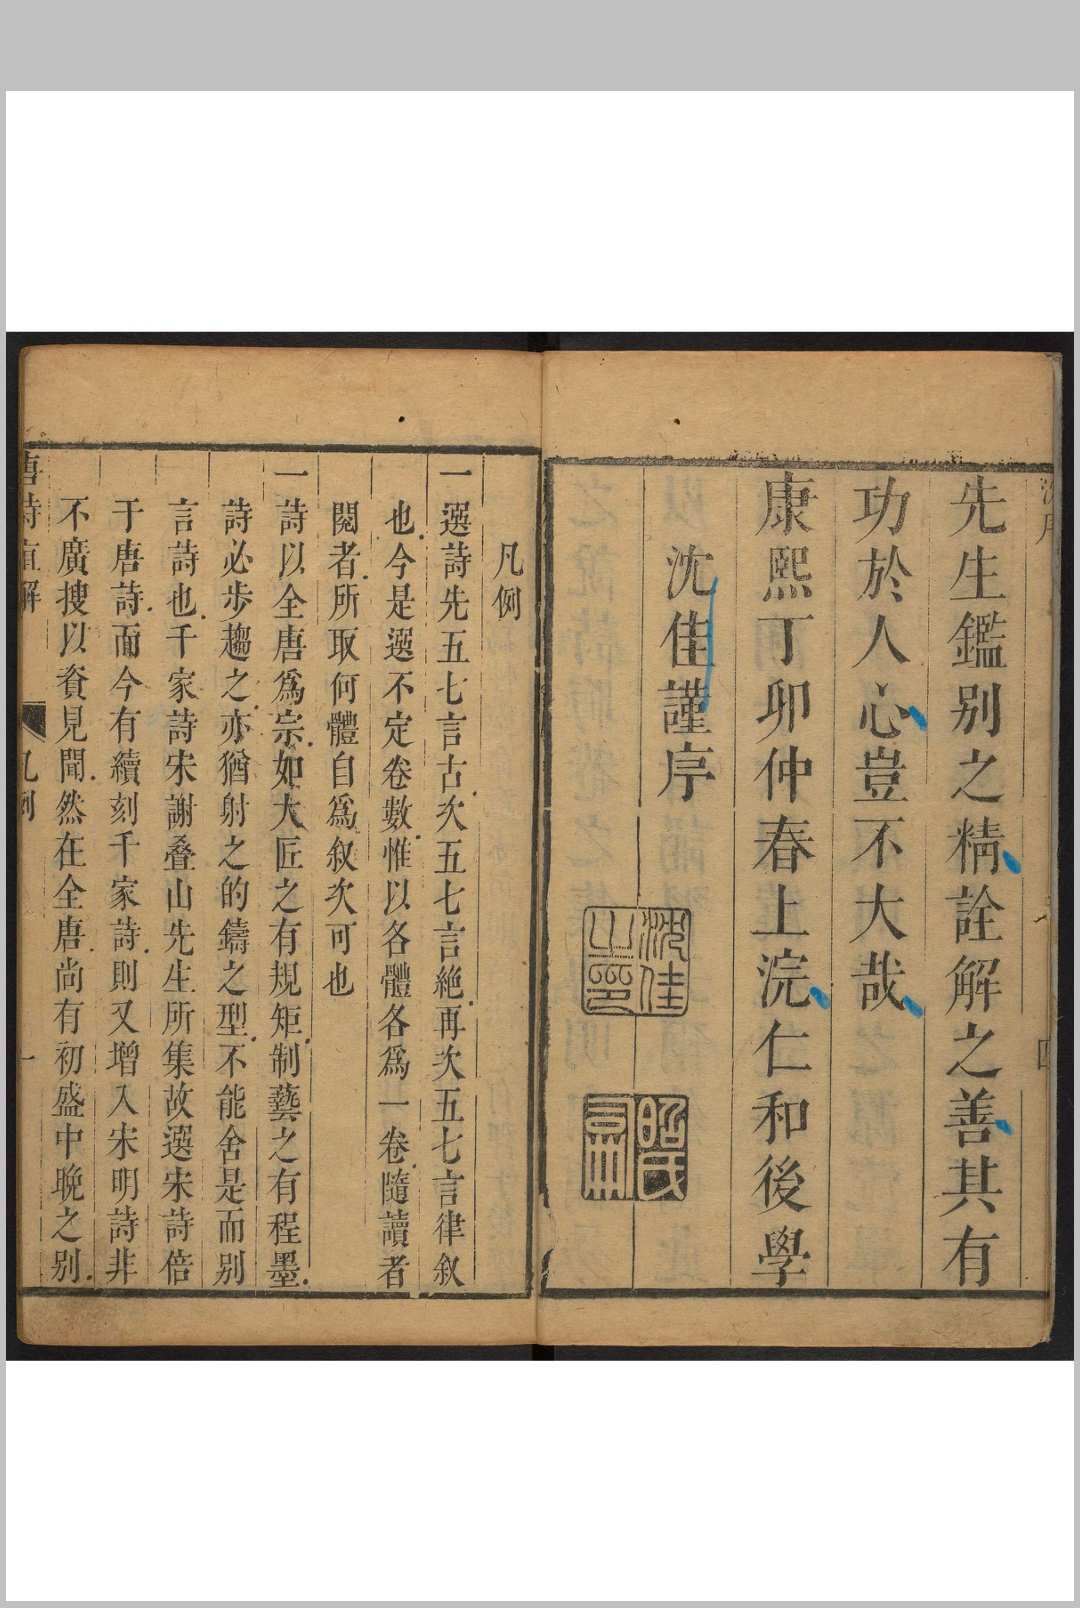 先生鑑別之精詮解之善其有
功於人心豈不大哉
康熙丁卯仲春上浣仁和後學
沈佳謹序
沈佳之印
昭嗣
凡例
一選詩先五七言古次五七言絶再次五七言律叙
也今是選不定卷數惟以各體各爲一卷隨讀者
閱者所取何體自爲叙次可也
一詩以全唐爲宗如大匠之有規矩制藝之有程墨
詩必步趨之亦猶射之的鑄之型不能舍是而别
言詩也千家詩宋謝叠山先生所集故選宋詩倍
于唐詩而今有續刻千家詩則又增入宋明詩非
不廣搜以資見聞然在全唐尚有初盛中晚之别
唐詩直解
凡例
一